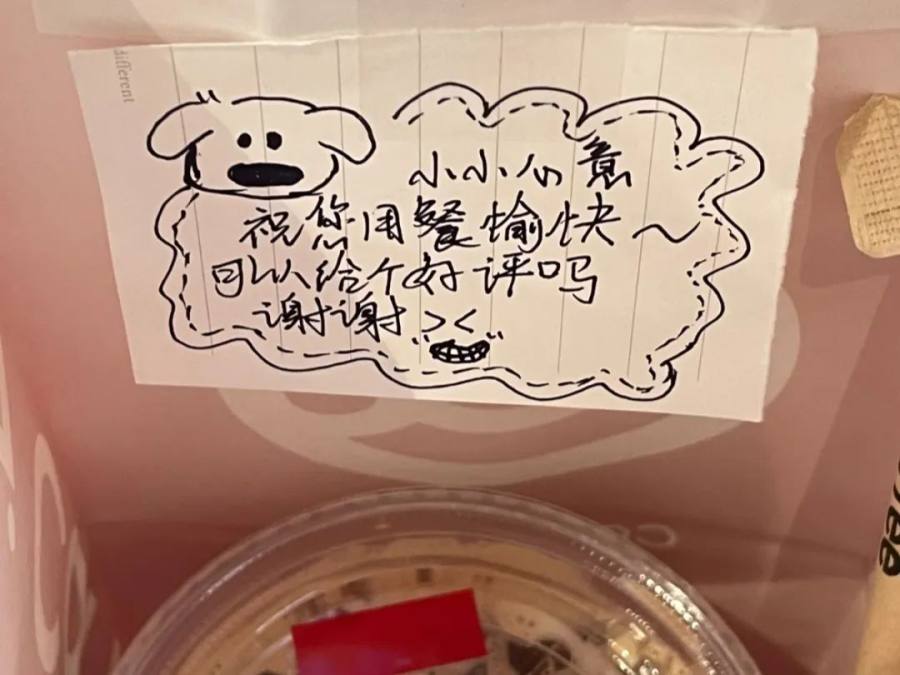 different
小小心意
祝您用餐愉快~
可以给个好评吗
谢谢谢谢 ><